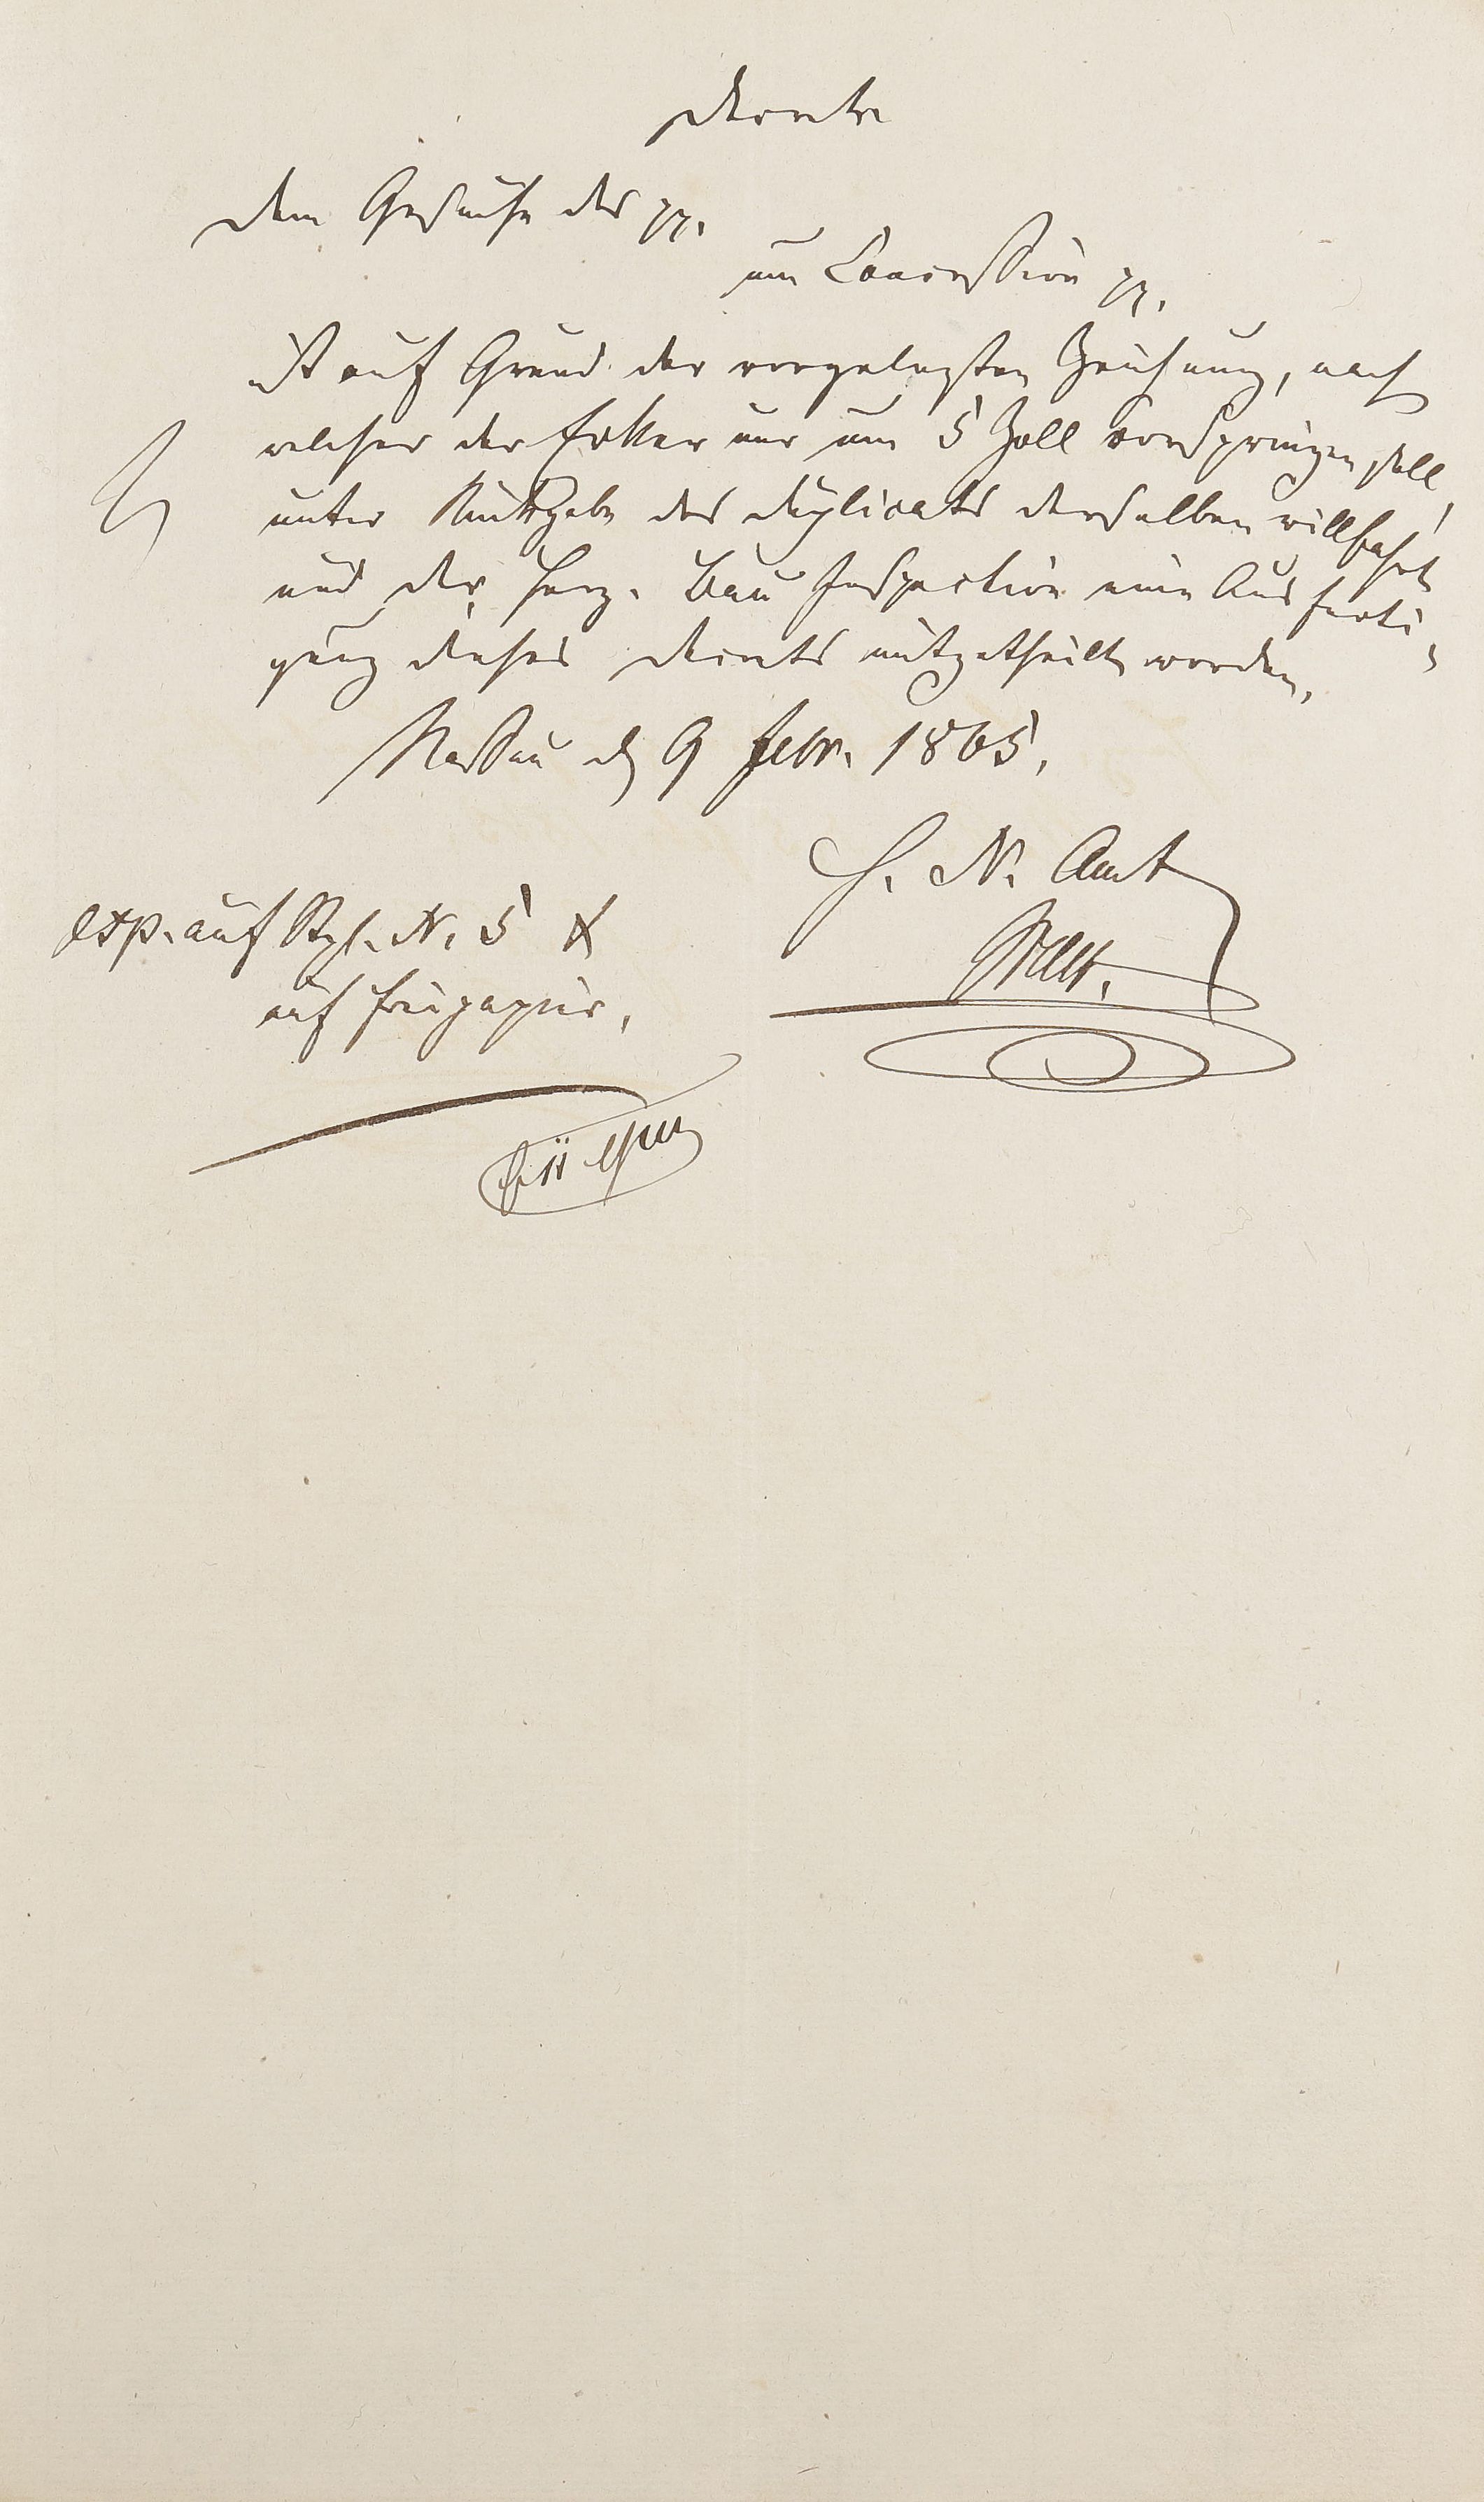 Decrete
Dem Gesuche des pp.
um Concession pp.
ist auf Grund der vorgelegten Zeichnung, nach
welcher der Erker nur um 5 Zoll vorspringen soll,
unter Rückgabe des Duplicats derselben willfahrt
und der Herz. Bau Inspection eine Ausferti-
gung dieses Decrets mitgetheilt worden.
Nassau d 9 Febr. 1865.
H. N. Amt
exp. auf Stpl. N. 5 &
auf Freipapier,